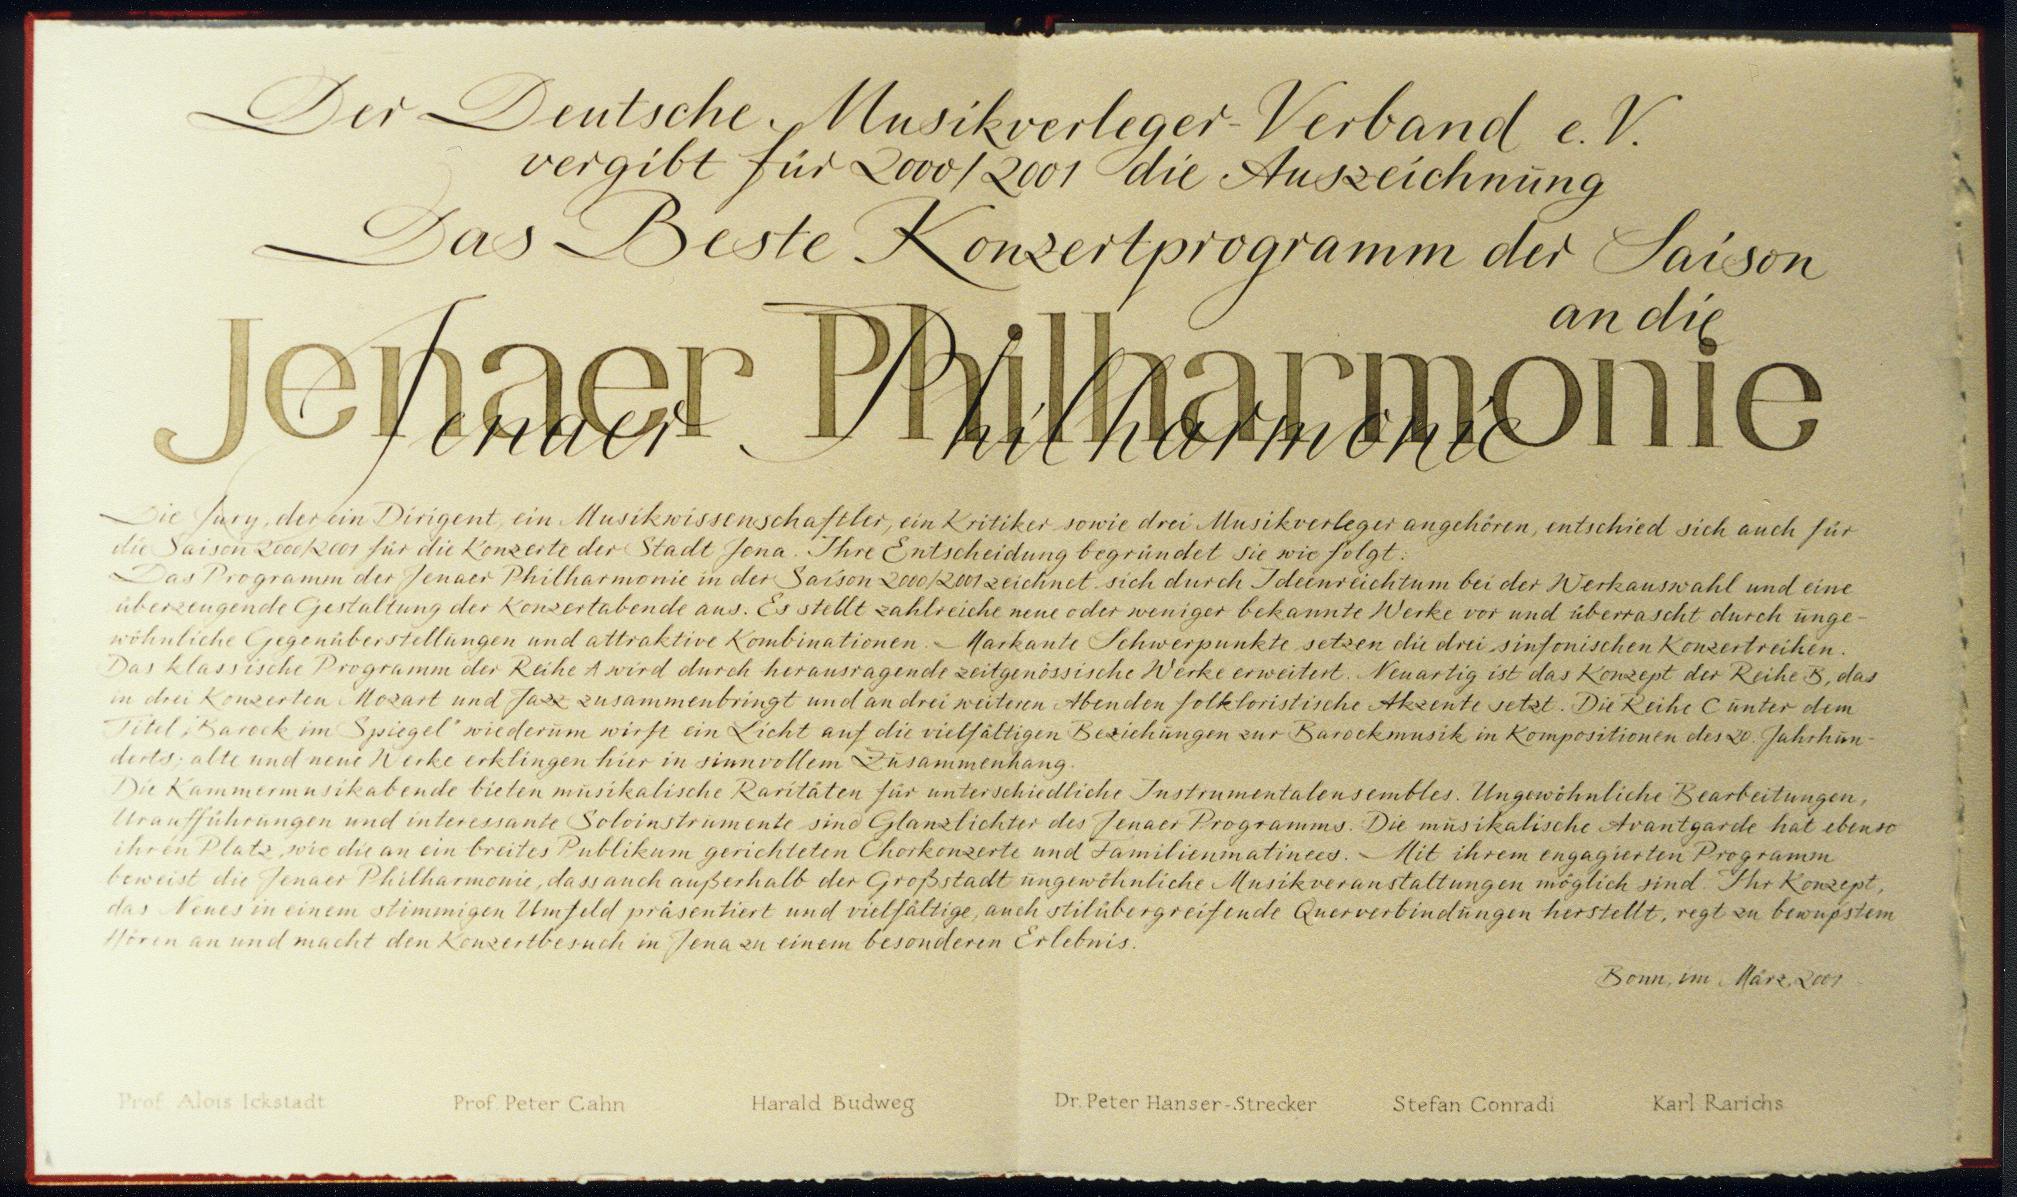 Der Deutsche Musikverleger-Verband e.V.
vergibt für 2000/2001 die Auszeichnung
Das Beste Konzertprogramm der Saison
an die
Jenaer Philharmonie
Jenaer Philharmonie
Die Jury, der ein Dirigent, ein Musikwissenschaftler, ein Kritiker sowie drei Musikverleger angehören, entschied sich auch für
die Saison 2000/2001 für die Konzerte der Stadt Jena. Ihre Entscheidung begründet sie wie folgt:
Das Programm der Jenaer Philharmonie in der Saison 2000/2001 zeichnet sich durch Ideenreichtum bei der Werkauswahl und eine
überzeugende Gestaltung der Konzertabende aus. Es stellt zahlreiche neue oder weniger bekannte Werke vor und überrascht durch unge-
wöhnliche Gegenüberstellungen und attraktive Kombinationen. Markante Schwerpunkte setzen die drei sinfonischen Konzertreihen.
Das klassische Programm der Reihe A wird durch herausragende zeitgenössische Werke erweitert. Neuartig ist das Konzept der Reihe B, das
in drei Konzerten Mozart und Jazz zusammenbringt und an drei weiteren Abenden folkloristische Akzente setzt. Die Reihe C unter dem
Titel „Barock im Spiegel" wiederum wirft ein Licht auf die vielfältigen Beziehungen zur Barockmusik in Kompositionen des 20. Jahrhun-
derts; alte und neue Werke erklingen hier in sinnvollem Zusammenhang.
Die Kammermusikabende bieten musikalische Raritäten für unterschiedliche Instrumentalensembles. Ungewöhnliche Bearbeitungen,
Uraufführungen und interessante Soloinstrumente sind Glanzlichter des Jenaer Programms. Die musikalische Avantgarde hat ebenso
ihren Platz, wie die an ein breites Publikum gerichteten Chorkonzerte und Familienmatinees. Mit ihrem engagierten Programm
beweist die Jenaer Philharmonie, dass auch außerhalb der Großstadt ungewöhnliche Musikveranstaltungen möglich sind. Ihr Konzept,
das Neues in einem stimmigen Umfeld präsentiert und vielfältige, auch stilübergreifende Querverbindungen herstellt, regt zu bewußtem
Hören an und macht den Konzertbesuch in Jena zu einem besonderen Erlebnis.
Bonn, im März 2001
Prof. Alois Ickstadt Prof. Peter Cahn Harald Budweg Dr. Peter Hanser-Strecker Stefan Conradi Karl Rarichs